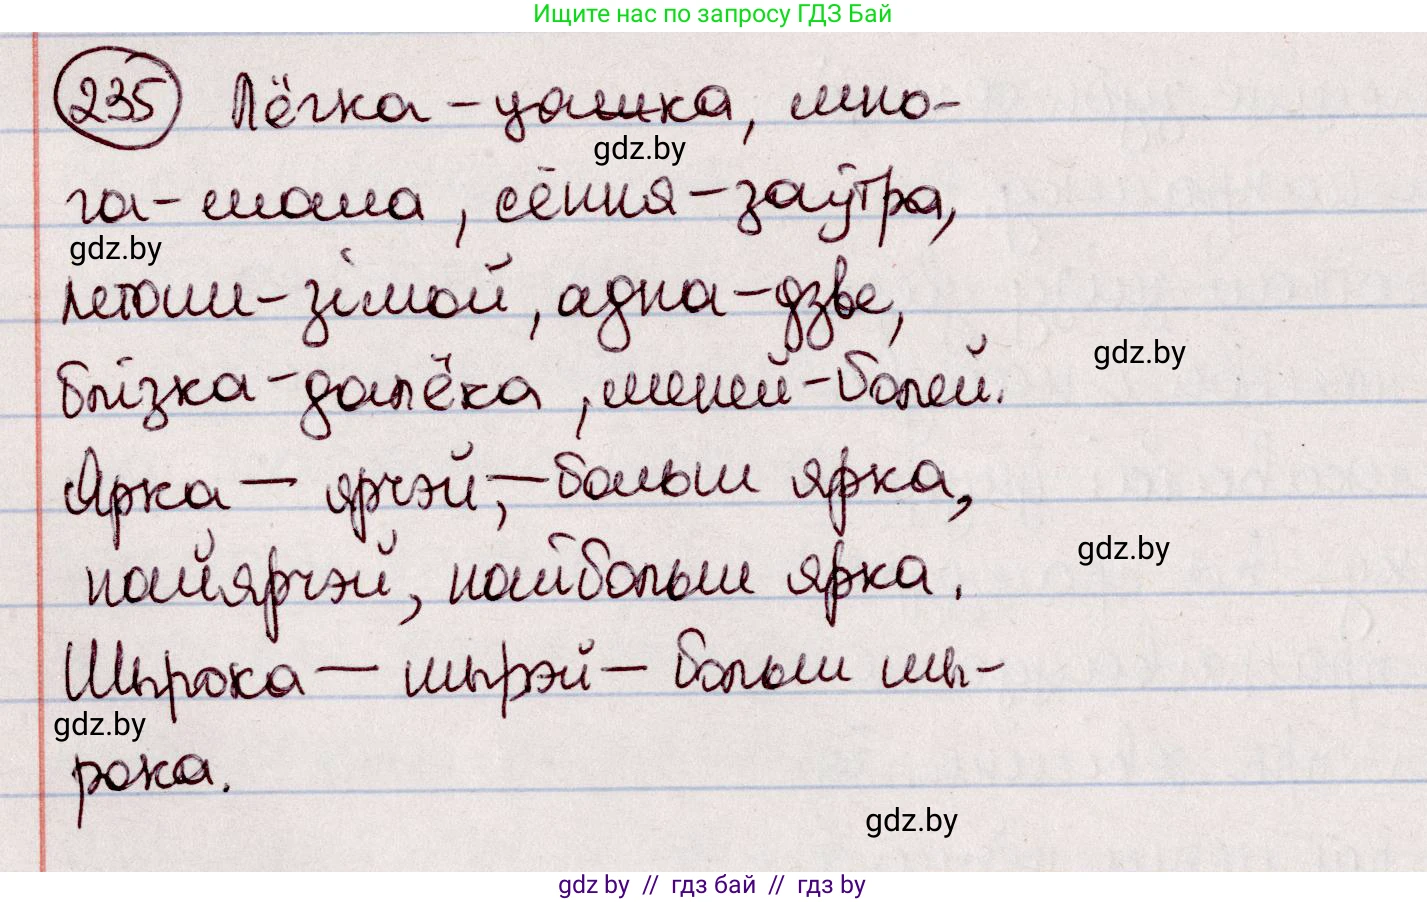 Ищите нас по запросу ГДЗ Бай
235 Лёгка – цяжка, мно-
gdz.by
га – мала, сёння – заўтра,
gdz.by
летам – зімой, адна – дзве,
gdz.by
блізка – далёка, меней – болей.
Ярка – ярчэй, – больш ярка,
gdz.by
найярчэй, найбольш ярка.
Шырока – шырэй – больш шы-
gdz.by
рока.
gdz.by
gdz by // гдз бай // гдз by